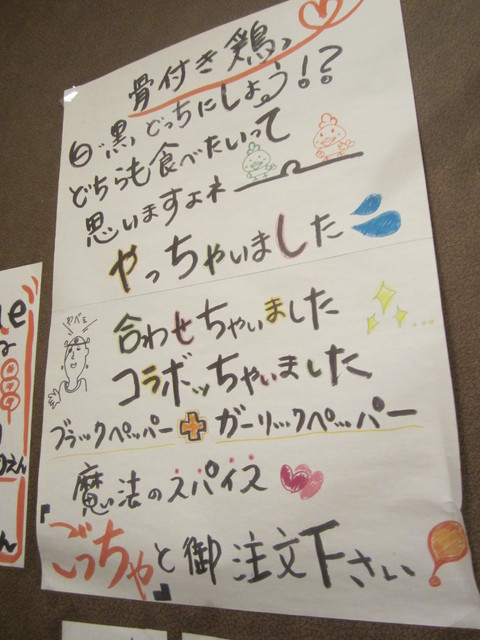 骨付き鶏、
白・黒、どっちにしよう!?
どちらも食べたいって
思いますよネ
やっちゃいました
やべぇ
合わせちゃいました
コラボッちゃいました
ブラックペッパー+ガーリックペッパー
魔法のスパイス
『ごっちゃ』と御注文下さい